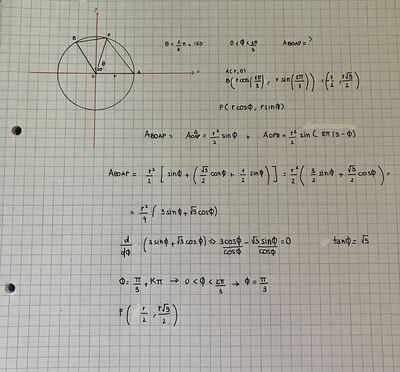 y
B P
θ
120
O r A x
θ = 2/3 π = 120° 0 < φ < 2π/3 A_BOAP = ?
A(r, 0)
B( r cos(2π/3) , r sin(2π/3) ) = ( r/2 , r√3/2 )
P( r cosφ, r sinφ)
A_BOAP = A_OAP = r²/2 sinφ + A_OPB = r²/2 sin( 2π/3 - φ)
A_BOAP = r²/2 [ sinφ + ( √3/2 cosφ + 1/2 sinφ ) ] = r²/2 ( 3/2 sinφ + √3/2 cosφ ) =
= r²/4 ( 3 sinφ + √3 cosφ)
d/dφ (3 sinφ + √3 cosφ) => 3cosφ/cosφ - √3 sinφ/cosφ = 0 tanφ = √3
φ = π/3 + Kπ → 0 < φ < 2π/3 → φ = π/3
P ( r/2 , r√3/2 )